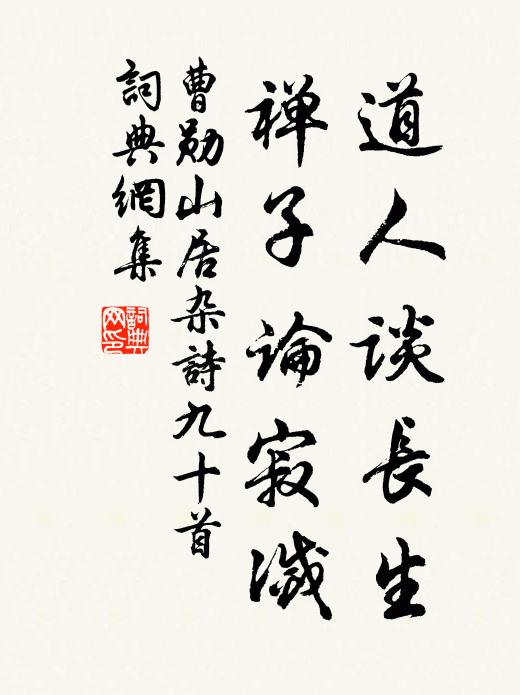 道人谈長生
禅子論寂滅
曹勋山居杂詩九十首
詞典網集
詞典网印